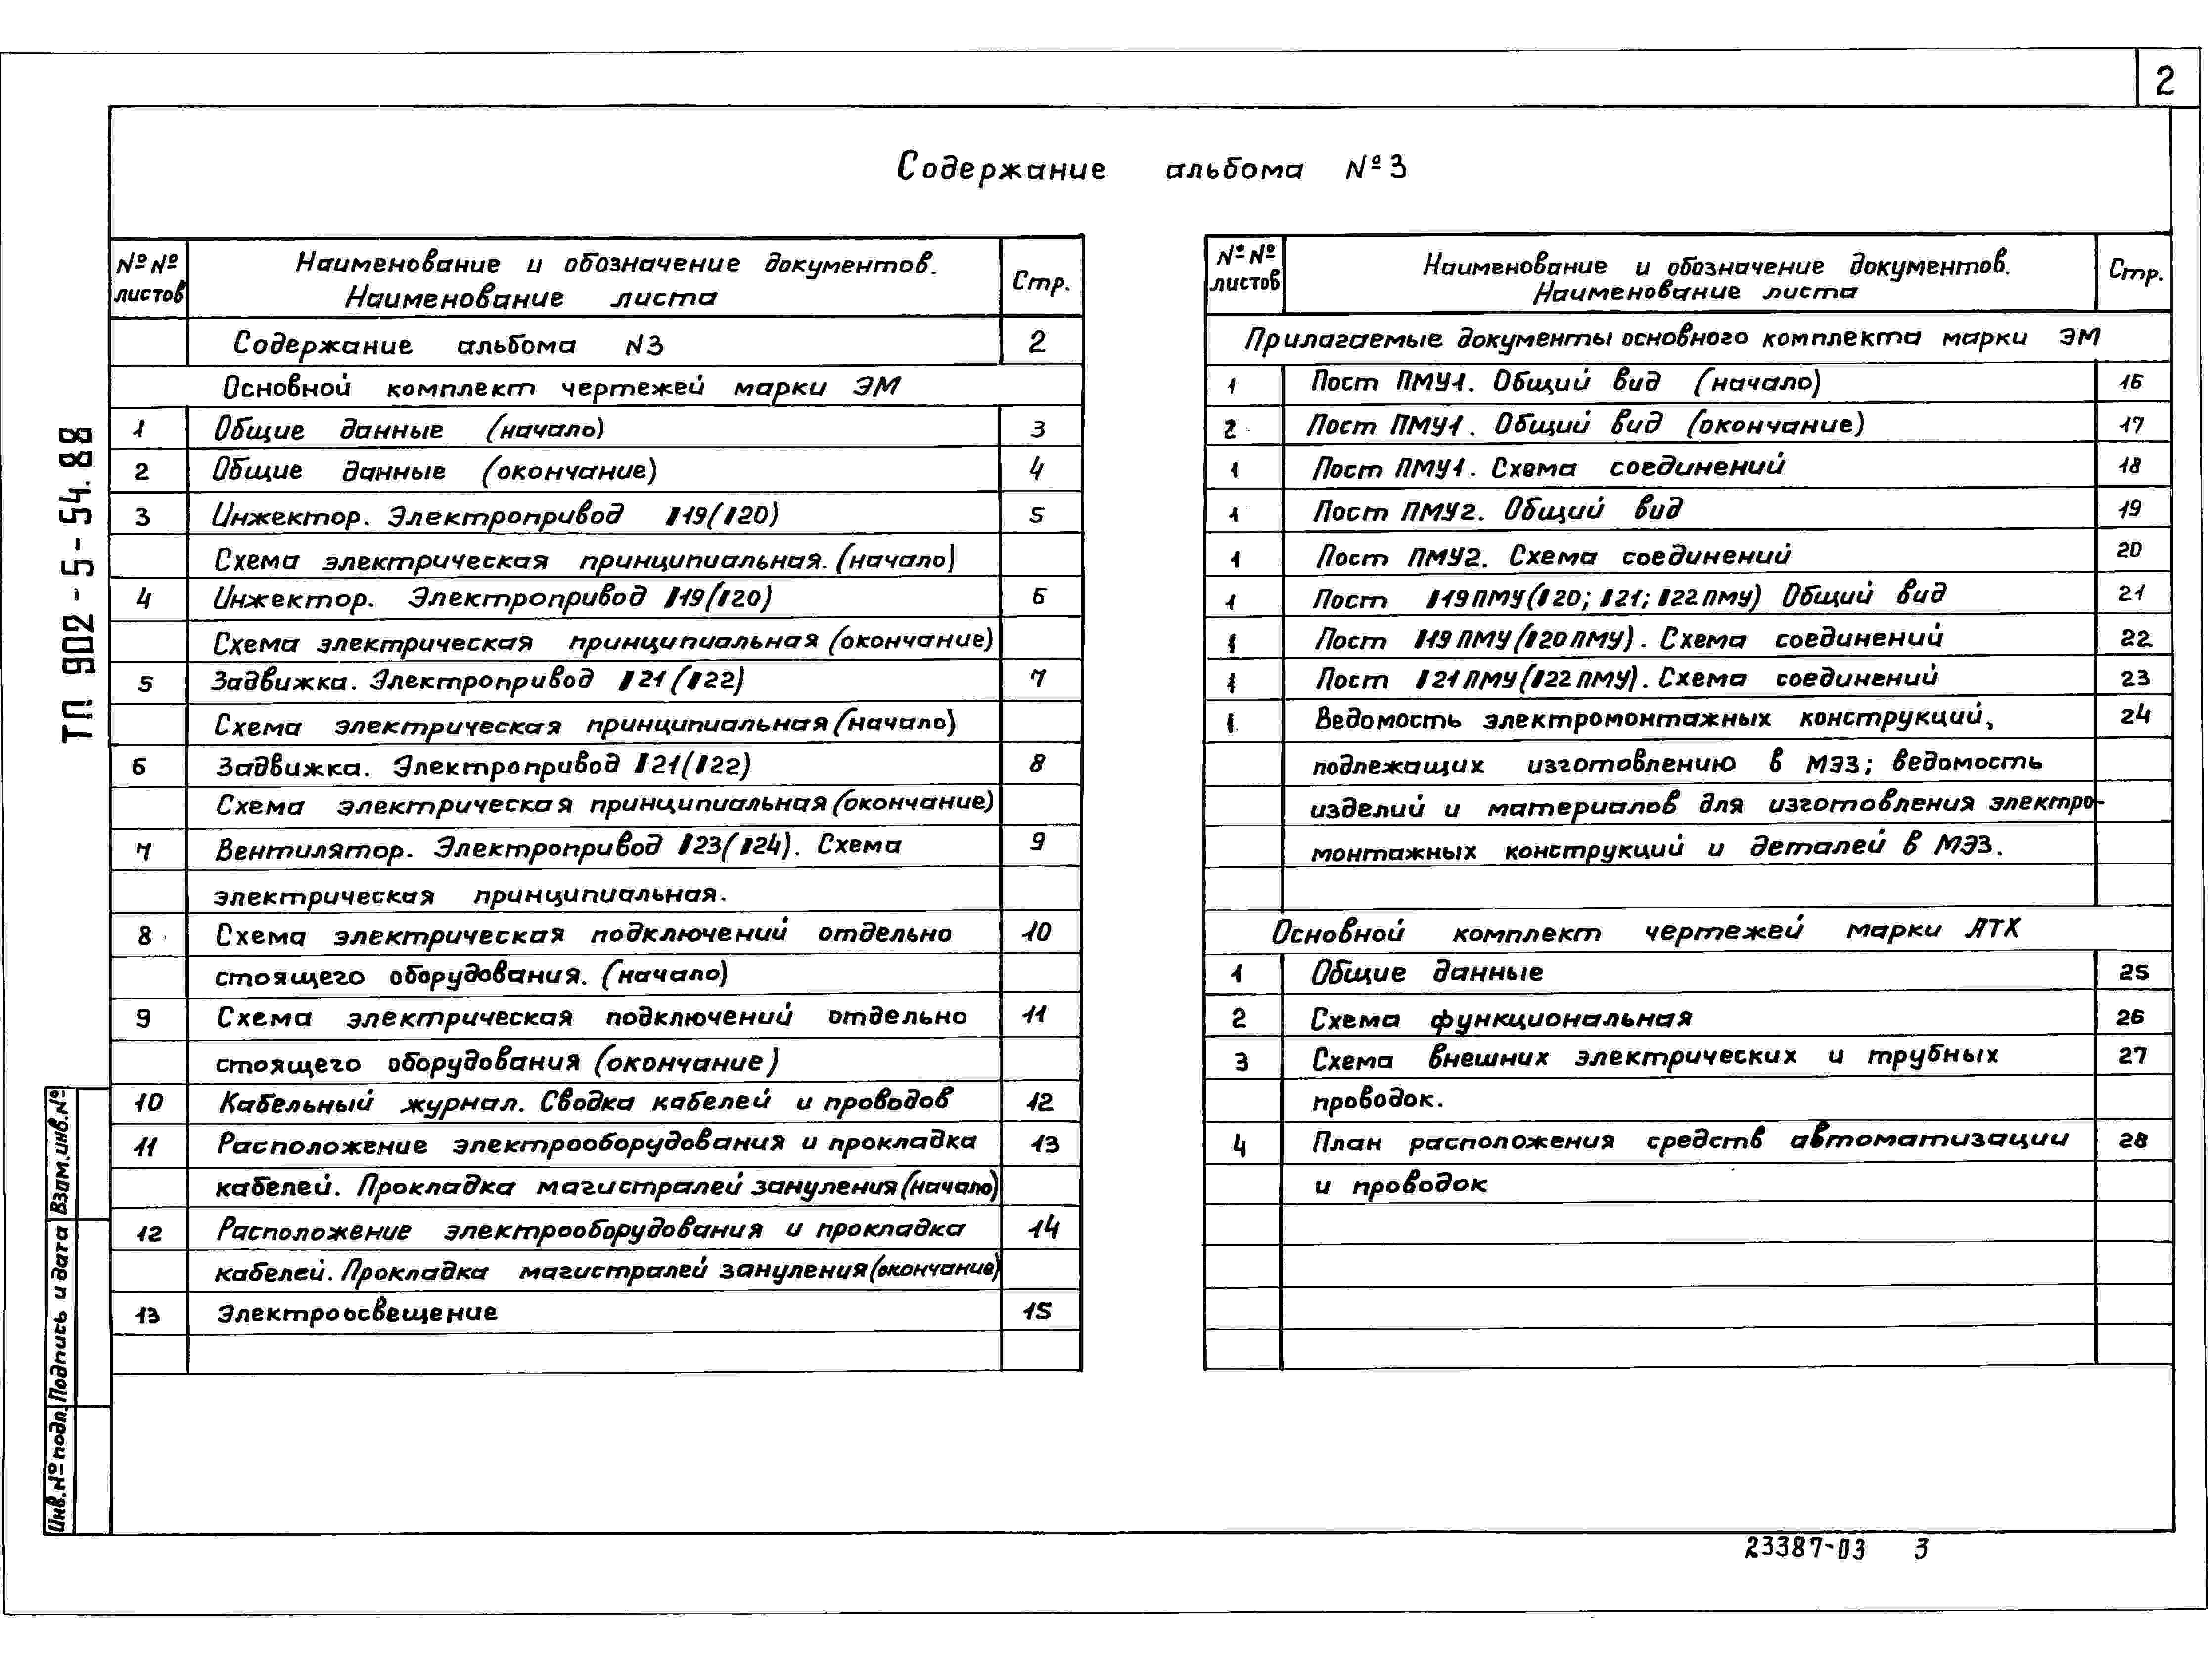 2
Содержание альбома №3
№№ листов
Наименование и обозначение документов.
Наименование листа
Стр.
Содержание альбома N3 2
Основной комплект чертежей марки ЭМ
1 Общие данные (начало) 3
2 Общие данные (окончание) 4
3 Инжектор. Электропривод 119(120) 5
Схема электрическая принципиальная. (начало)
4 Инжектор. Электропривод 119(120) 6
Схема электрическая принципиальная (окончание)
5 Задвижка. Электропривод 121(122) 7
Схема электрическая принципиальная (начало)
6 Задвижка. Электропривод 121(122) 8
Схема электрическая принципиальная (окончание)
7 Вентилятор. Электропривод 123(124). Схема 9
электрическая принципиальная.
8 Схема электрическая подключений отдельно 10
стоящего оборудования. (начало)
9 Схема электрическая подключений отдельно 11
стоящего оборудования (окончание)
10 Кабельный журнал. Сводка кабелей и проводов 12
11 Расположение электрооборудования и прокладка 13
кабелей. Прокладка магистралей зануления (начало)
12 Расположение электрооборудования и прокладка 14
кабелей. Прокладка магистралей зануления (окончание)
13 Электроосвещение 15
№№ листов
Наименование и обозначение документов.
Наименование листа
Стр.
Прилагаемые документы основного комплекта марки ЭМ
1 Пост ПМУ1. Общий вид (начало) 16
2 Пост ПМУ1. Общий вид (окончание) 17
1 Пост ПМУ1. Схема соединений 18
1 Пост ПМУ2. Общий вид 19
1 Пост ПМУ2. Схема соединений 20
1 Пост 119ПМУ(120; 121; 122ПМУ) Общий вид 21
1 Пост 119ПМУ(120ПМУ). Схема соединений 22
1 Пост 121ПМУ(122ПМУ). Схема соединений 23
1 Ведомость электромонтажных конструкций, 24
подлежащих изготовлению в МЭЗ; ведомость
изделий и материалов для изготовления электро-
монтажных конструкций и деталей в МЭЗ.
Основной комплект чертежей марки АТХ
1 Общие данные 25
2 Схема функциональная 26
3 Схема внешних электрических и трубных 27
проводок.
4 План расположения средств автоматизации 28
и проводок
ТП 902-5-54.88
Взам.инв.№
Подпись и дата
Инв.№ подл.
23387-03 3